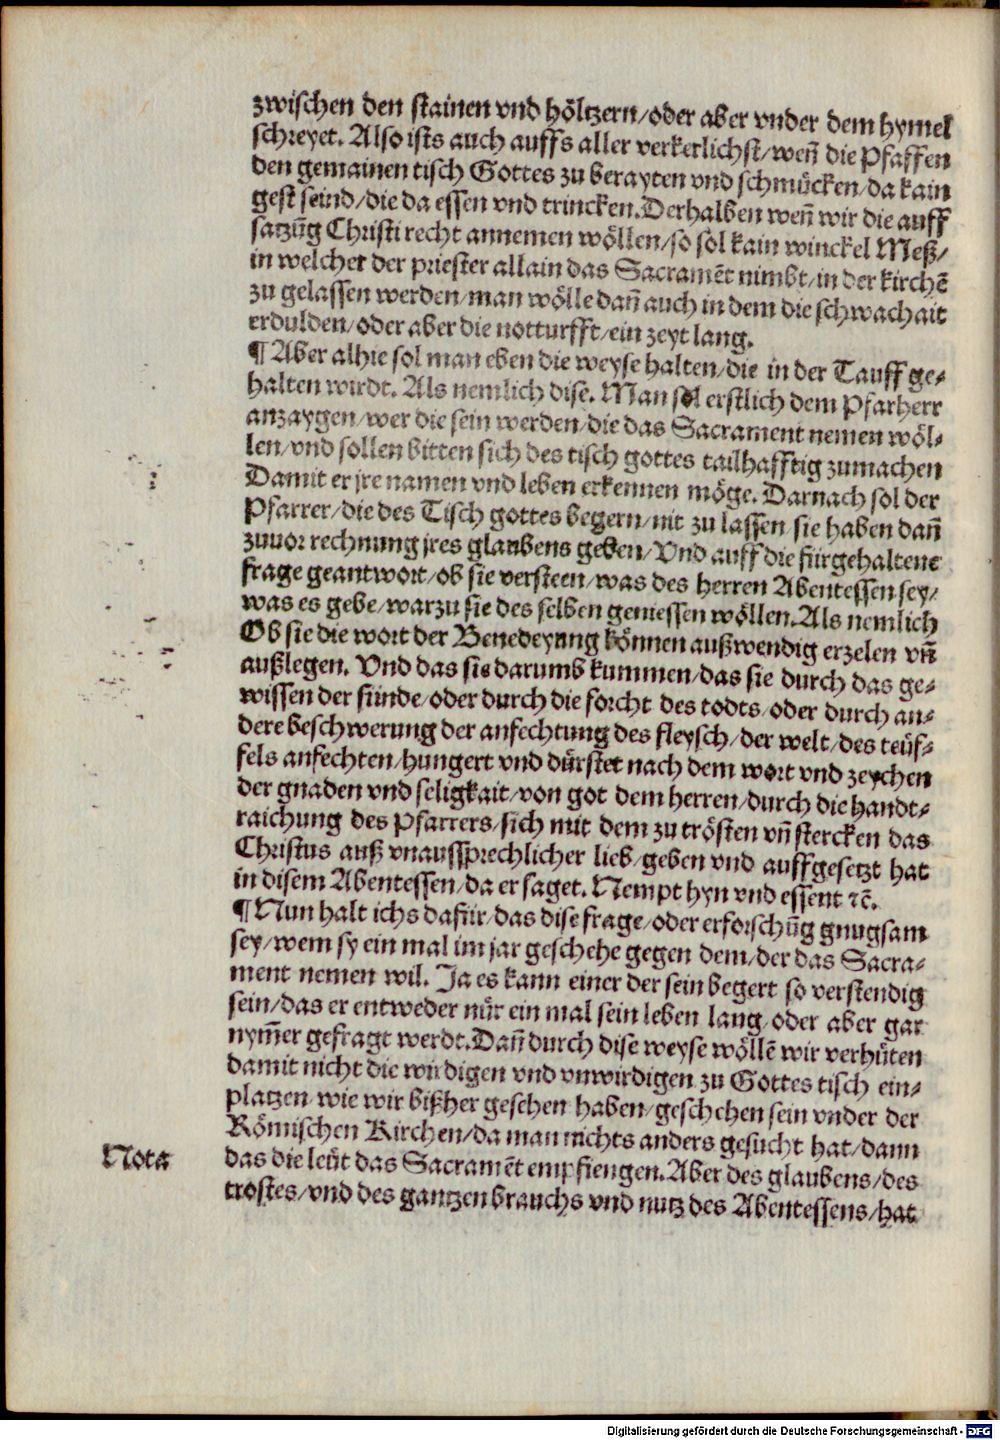 zwischen den stainen vnd höltzern/oder aber vnder dem hymel
schreyet. Also ists auch auffs aller verkerlichst/weñ die Pfaffen
den gemainen tisch Gottes zu berayten vnd schmücken/da kain
gest seind/die da essen vnd trincken.Derhalben weñ wir die auff
satzũg Christi recht annemen wöllen/so sol kain winckel Meß/
in welcher der priester allain das Sacramẽt nimbt/in der kirchẽ
zu gelassen werden/man wölle dañ auch in dem die schwachait
erdulden/oder aber die notturfft/ein zeyt lang.
¶ Aber alhie sol man eben die weyse halten/die in der Tauff ge⸗
halten wirdt. Als nemlich dise. Man sol erstlich dem Pfarherr
anzaygen/wer die sein werden/die das Sacrament nemen wöl⸗
len/vnd sollen bitten sich des tisch gottes tailhafftig zumachen
Damit er jre namen vnd leben erkennen möge. Darnach sol der
Pfarrer/die des Tisch gottes begern/nit zu lassen sie haben dañ
zuuor rechnung jres glaubens geben/Vnd auff die fürgehaltene
frage geantwort/ob sie versteen/was des herren Abentessen sey/
was es gebe/warzu sie des selben geniessen wöllen.Als nemlich
Ob sie die wort der Benedeyung können außwendig erzelen vñ
außlegen. Vnd das sie darumb kummen/das sie durch das ge⸗
wissen der sünde/oder durch die forcht des todts/oder durch an⸗
dere beschwerung der anfechtung des fleysch/der welt/des teüf⸗
fels anfechten/hungert vnd dürstet nach dem wort vnd zeychen
der gnaden vnd seligkait/von got dem herren/durch die handt⸗
raichung des Pfarrers/sich mit dem zu trösten vñ stercken das
Christus auß vnaussprechlicher lieb/geben vnd auffgesetzt hat
in disem Abentessen/da er saget. Nempt hyn vnd essent ⁊c̃.
¶ Nun halt ichs dafür/das dise frage/oder erforschũg gnugsam
sey/wem sy ein mal im jar geschehe gegen dem/der das Sacra⸗
ment nemen wil. Ja es kann einer der sein begert so verstendig
sein/das er entweder nür ein mal sein leben lang/oder aber gar
nym̃er gefragt werdt.Dañ durch dise weyse wöllẽ wir verhüten
damit nicht die wirdigen vnd vnwirdigen zu Gottes tisch ein⸗
platzen/wie wir bißher gesehen haben/geschehen sein vnder der
Römischen Kirchen/da man nichts anders gesucht hat/dann
Nota
das die leüt das Sacramẽt empfiengen.Aber des glaubens/des
trostes/vnd des gantzen brauchs vnd nutz des Abentessens/hat
Digitalisierung gefördert durch die Deutsche Forschungsgemeinschaft - DFG